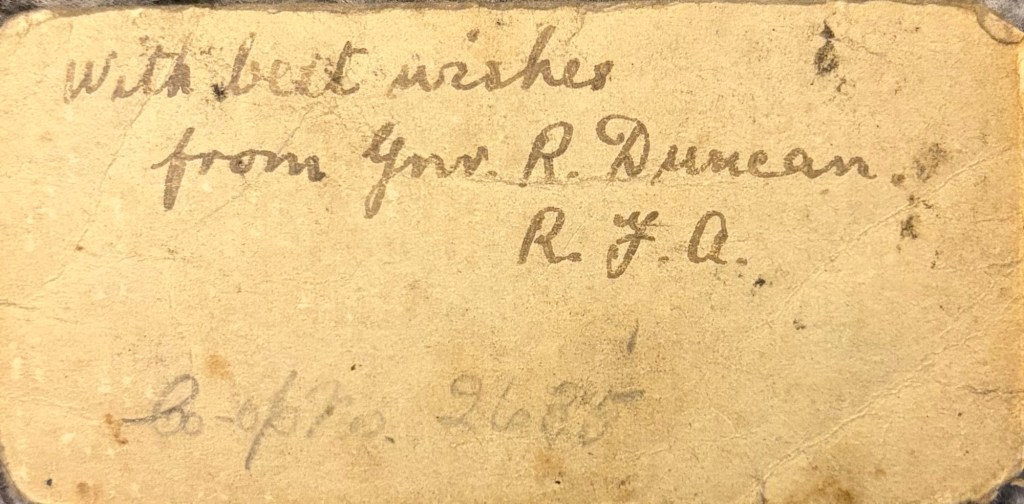 With best wishes
from Gnr. R. Duncan.
R. F. A.
Co-op No. 2635